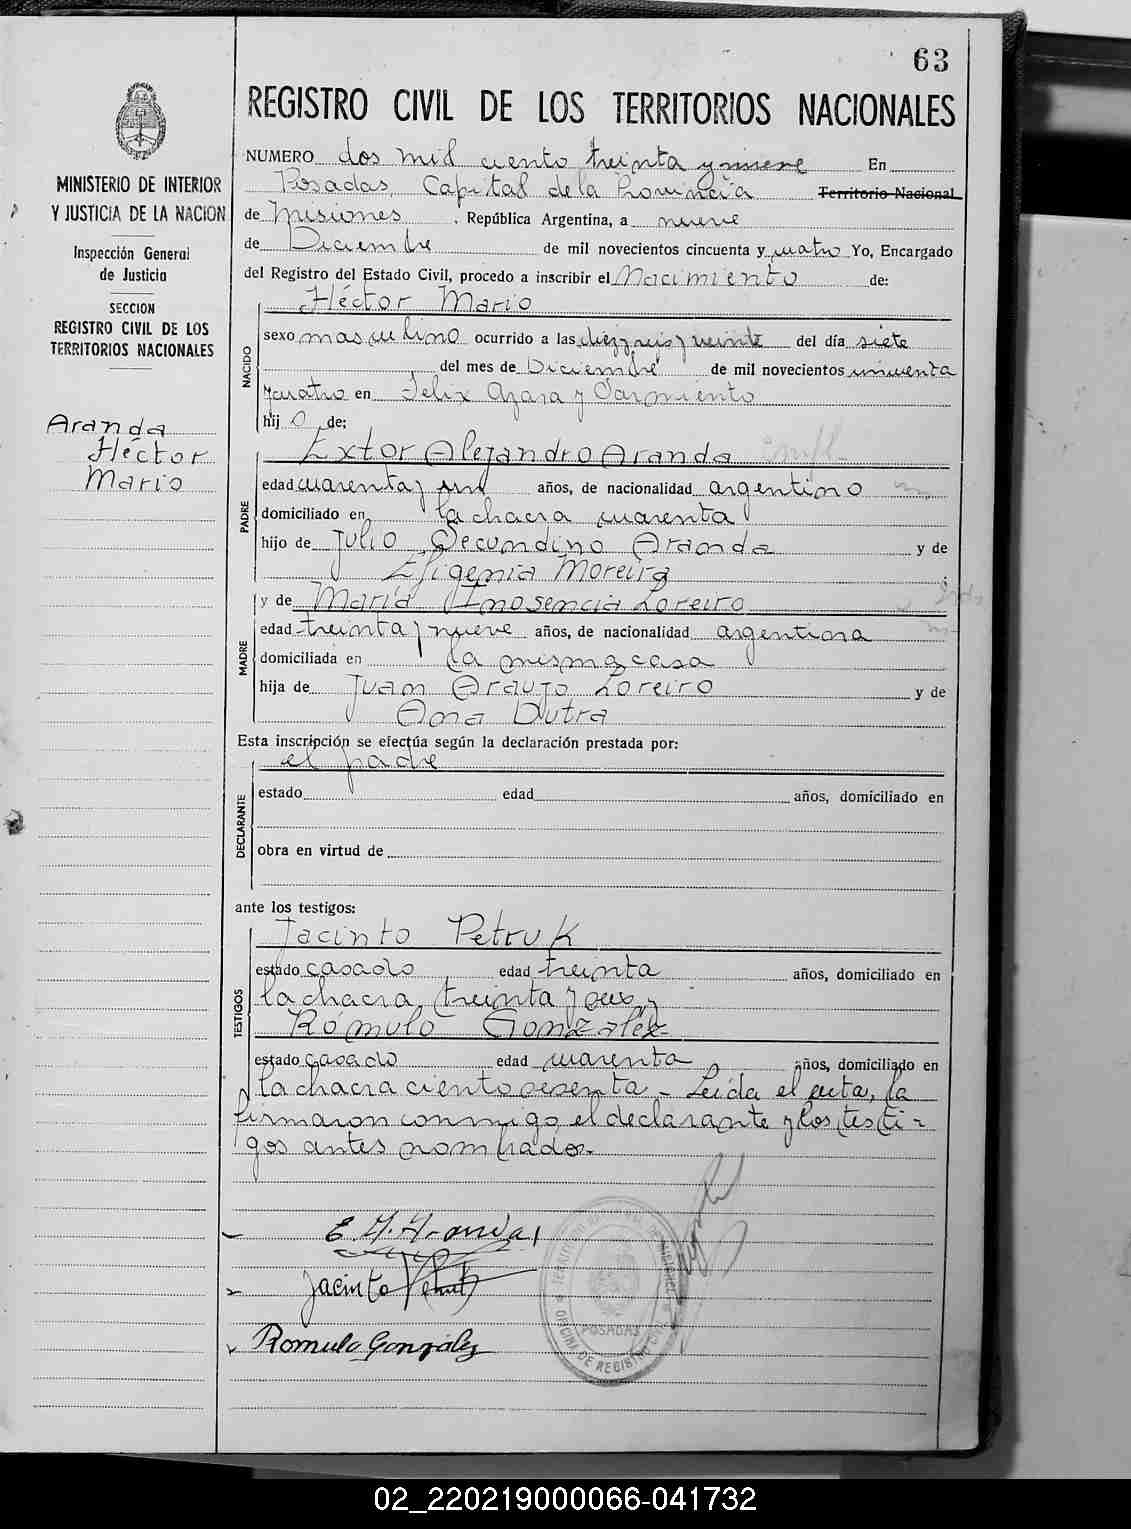 63
REGISTRO CIVIL DE LOS TERRITORIOS NACIONALES
MINISTERIO DE INTERIOR
Y JUSTICIA DE LA NACION
Inspección General
de Justicia
SECCION
REGISTRO CIVIL DE LOS
TERRITORIOS NACIONALES
Aranda
Héctor
Mario
NUMERO dos mil ciento treinta y nueve En
Posadas, Capital de la Provincia Territorio Nacional
de Misiones . República Argentina, a nueve
de Diciembre de mil novecientos cincuenta y cuatro Yo, Encargado
del Registro del Estado Civil, procedo a inscribir el Nacimiento de:
NACIDO
Héctor Mario
sexo masculino ocurrido a las diez y seis y veinte del día siete
del mes de Diciembre de mil novecientos cincuenta
y cuatro en Felix Azara y Sarmiento
hij o de:
PADRE
Extor Alejandro Aranda
edad cuarenta y un años, de nacionalidad argentino
domiciliado en la chacra cuarenta
hijo de Julio Secundino Aranda y de
Efigenia Moreira
MADRE
y de María Inosencia Loreiro
edad treinta y nueve años, de nacionalidad argentina
domiciliada en la misma casa
hija de Juan Araujo Loreiro y de
Ana Dutra
Esta inscripción se efectúa según la declaración prestada por:
DECLARANTE
el padre
estado edad años, domiciliado en
obra en virtud de
ante los testigos:
TESTIGOS
Jacinto Petruk
estado casado edad treinta años, domiciliado en
la chacra, treinta y seis y
Rómulo González
estado casado edad cuarenta años, domiciliado en
la chacra ciento sesenta - Leída el acta, la
firmaron conmigo el declarante y los testi=
gos antes nombrados.
Jacinto Petruk
Romulo González
POSADAS
OFICINA DE REGISTRO CIVIL
02_220219000066-041732